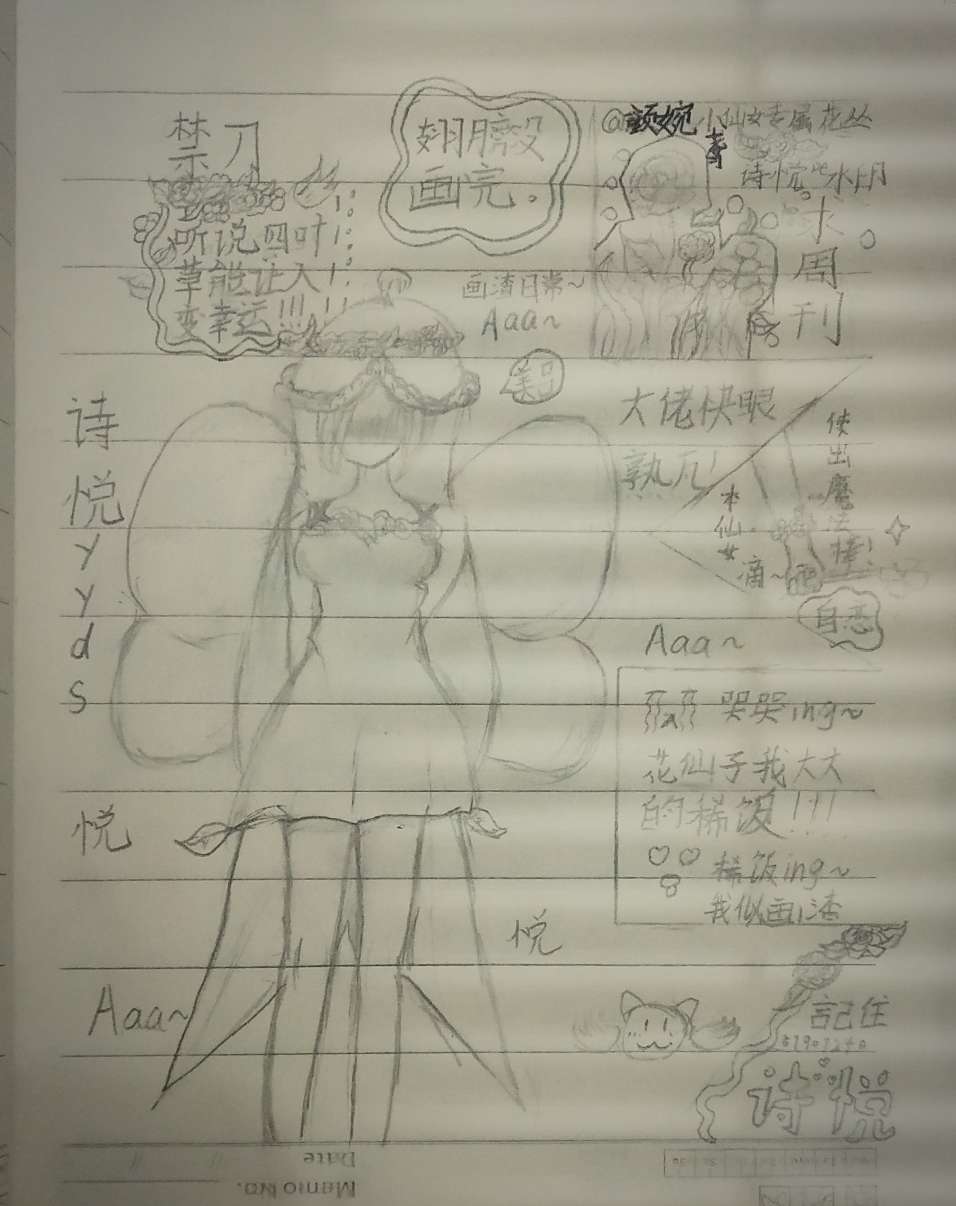 禁刀
听说四叶
草能让人
变幸运!!!
翅膀没
画完。
画渣日常~
Aaa~
@颜婉小仙女专属花丛
诗悦
水
周
刊
大佬快眼
熟瓦!
本
仙
女
滴~
使
出
魔
法
棒!
自恋
诗
悦
y
y
d
s
Aaa~
哭哭ing~
花仙子我大大
的稀饭!!!
稀饭ing~
我似画渣
悦
悦
Aaa~
記住
诗悦
Date
Memo No.